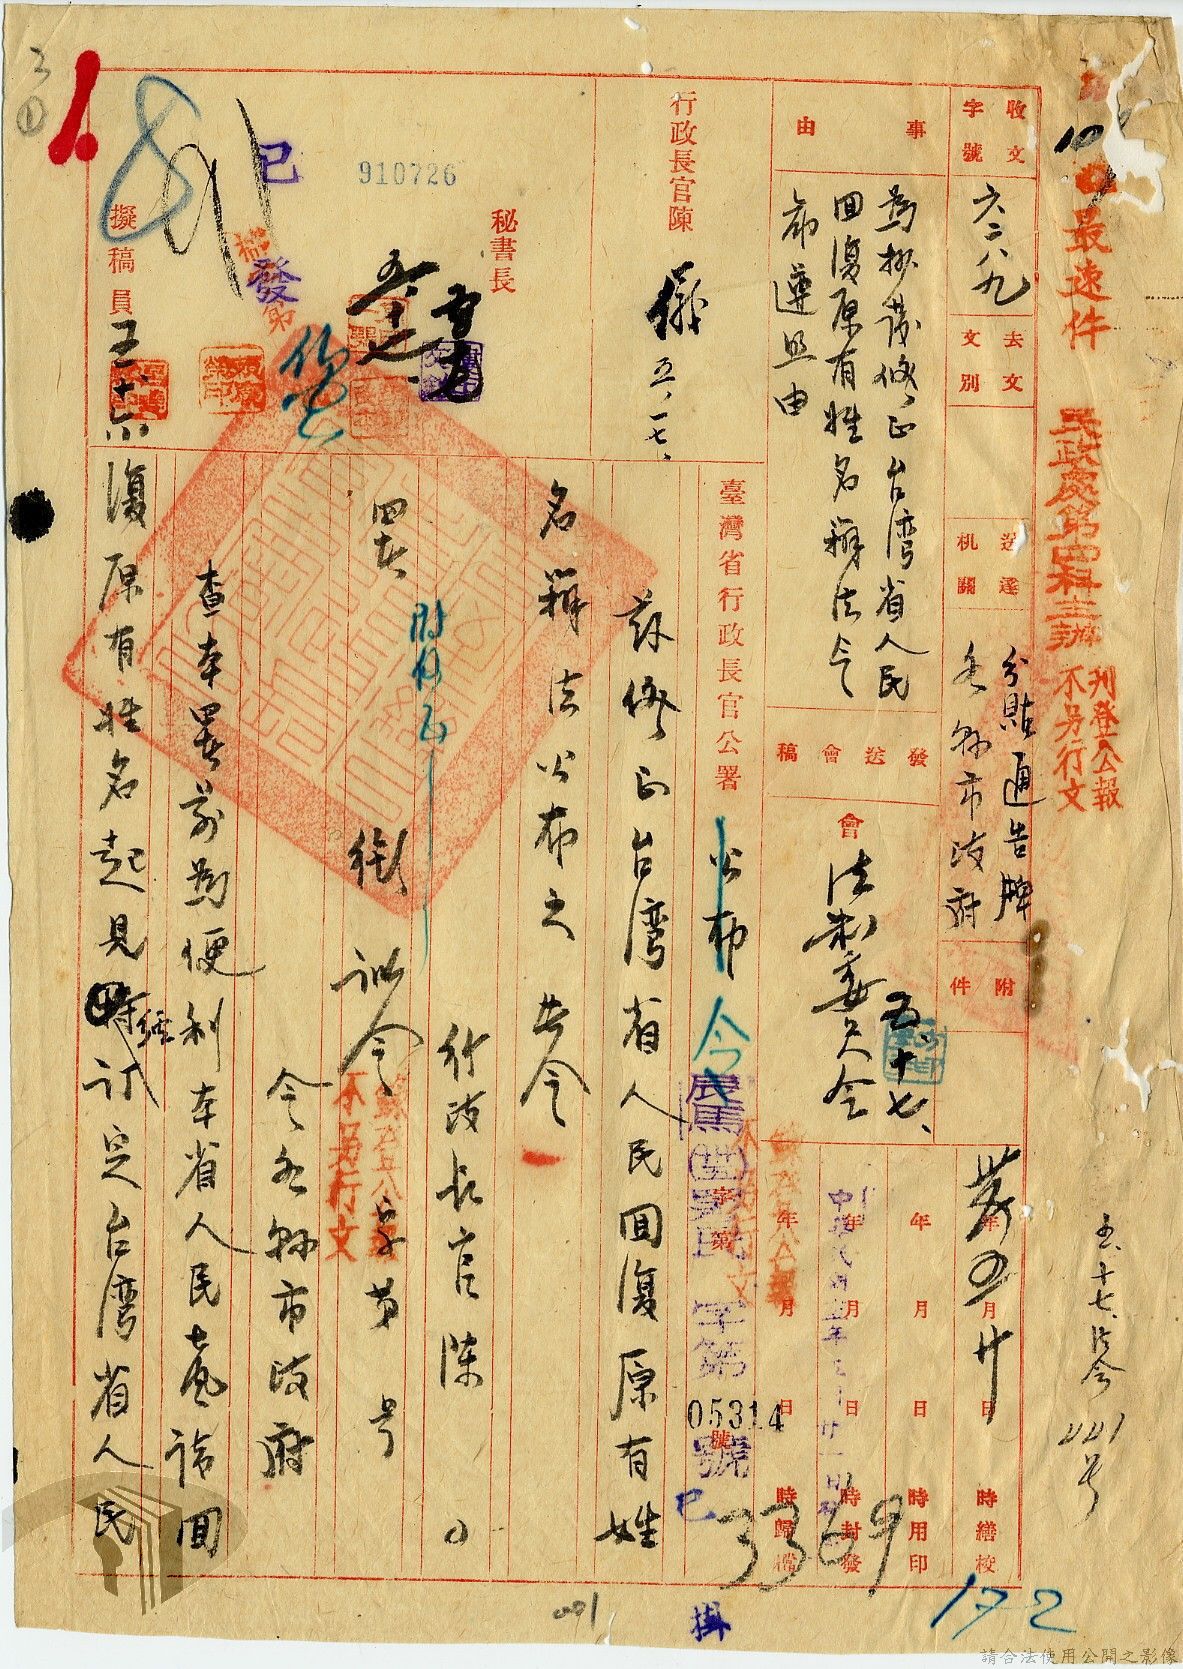 最速件
民政處第四科主辦
刊登公報
不另行文
五、十七、法令
441号
收文
字號
六二八九
去文
文別
送達
机關
分貼通告牌
各縣市政府
附
件
年
月
日
時繕校
年
月
日
時用印
年
月
日
時封發
年
月
日
時歸檔
事
由
為抄發修正台湾省人民
回復原有姓名辦法令
布遵照由
發
送
會
稿
會
法制委員会
五、十七、
行政長官陳
儀
五、一七、
臺灣省行政長官公署
公布
令
字第
號
05314
3369
172
茲修正台湾省人民回復原有姓
名辦法公布之 此令
行政長官陳〇
附修正
署 銜 訓令
字第 号
不另行文
令各縣市政府
查本署前為便利本省人民声請回
復原有姓名起見經訂定台湾省人民
秘書長
擬稿員
王
五、十六
已
發
910726
已
掛
001
3
①
請合法使用公開之影像